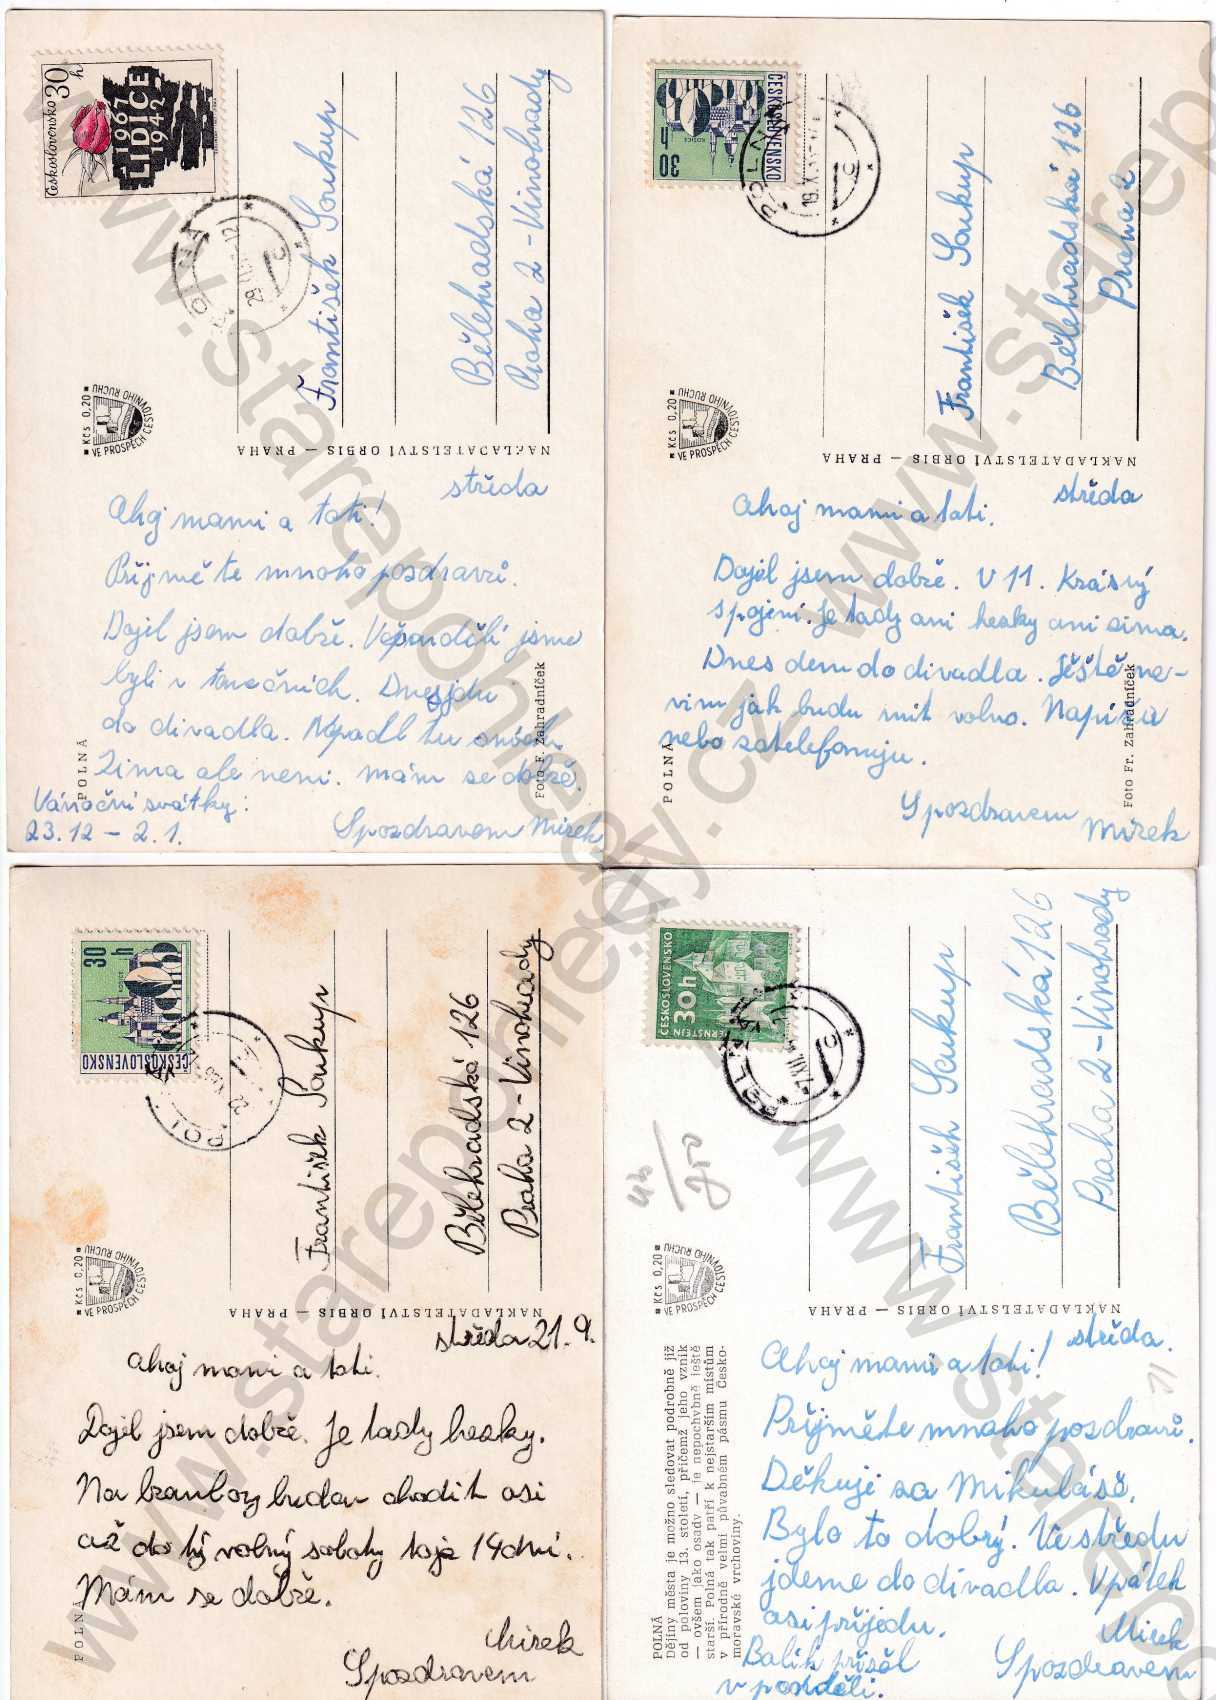 Československo 30 h
1967
LIDICE
1942
František Soukup
Bělehradská 126
Praha 2 - Vinohrady
Kčs 0,20
VE PROSPĚCH CESTOVNÍHO RUCHU
NAKLADATELSTVÍ ORBIS — PRAHA
středa
Ahoj mami a tati!
Přijměte mnoho pozdravů.
Dojel jsem dobře. V pondělí jsme
byli v tanečních. Dnes jdu
do divadla. Napadl tu
Zima ale není. mám se dobře.
Vánoční svátky:
23.12 - 2.1.
S pozdravem Mirek
POLNÁ
Foto F. Zahradníček
ČESKOSLOVENSKO
30 h
KOŠICE
POLNÁ
František Soukup
Bělehradská 126
Praha 2
Kčs 0,20
VE PROSPĚCH CESTOVNÍHO RUCHU
NAKLADATELSTVÍ ORBIS — PRAHA
středa
Ahoj mami a tati.
Dojel jsem dobře. V 11. Krásný
spojení. Je tady ani hezky ani zima.
Dnes dem do divadla. Ještě ne-
vim jak budu mít volno. Napíšu
nebo zatelefonuju.
S pozdravem
Mirek
POLNÁ
Foto Fr. Zahradníček
ČESKOSLOVENSKO
30 h
KOŠICE
František Soukup
Bělehradská 126
Praha 2 - Vinohrady
Kčs 0,20
VE PROSPĚCH CESTOVNÍHO RUCHU
NAKLADATELSTVÍ ORBIS — PRAHA
středa 21.9.
Ahoj mami a tati.
Dojel jsem dobře. Je tady hezky.
Na brambory budem chodit asi
až do tý volný soboty to je 14 dní.
Mám se dobře.
Mirek
S pozdravem
POLNÁ
ČESKOSLOVENSKO
30 h
PERNŠTEJN
POLNÁ
František Soukup
Bělehradská 126
Praha 2 - Vinohrady
Kčs 0,20
VE PROSPĚCH CESTOVNÍHO RUCHU
NAKLADATELSTVÍ ORBIS — PRAHA
středa.
Ahoj mami a tati!
Přijměte mnoho pozdravů.
Děkuji za Mikuláše.
Bylo to dobrý. Ve středu
jdeme do divadla. V pátek
asi přijedu.
Balík přišel
v pondělí.
Mirek
S pozdravem
POLNÁ
Dějiny města je možno sledovat podrobně již
od poloviny 13. století, přičemž jeho vznik
— ovšem jako osady — je nepochybně ještě
starší. Polná tak patří k nejstarším místům
v přírodně velmi půvabném pásmu Česko-
moravské vrchoviny.
www.starepohledy.cz
www.starepohledy.cz
www.starepohledy.cz